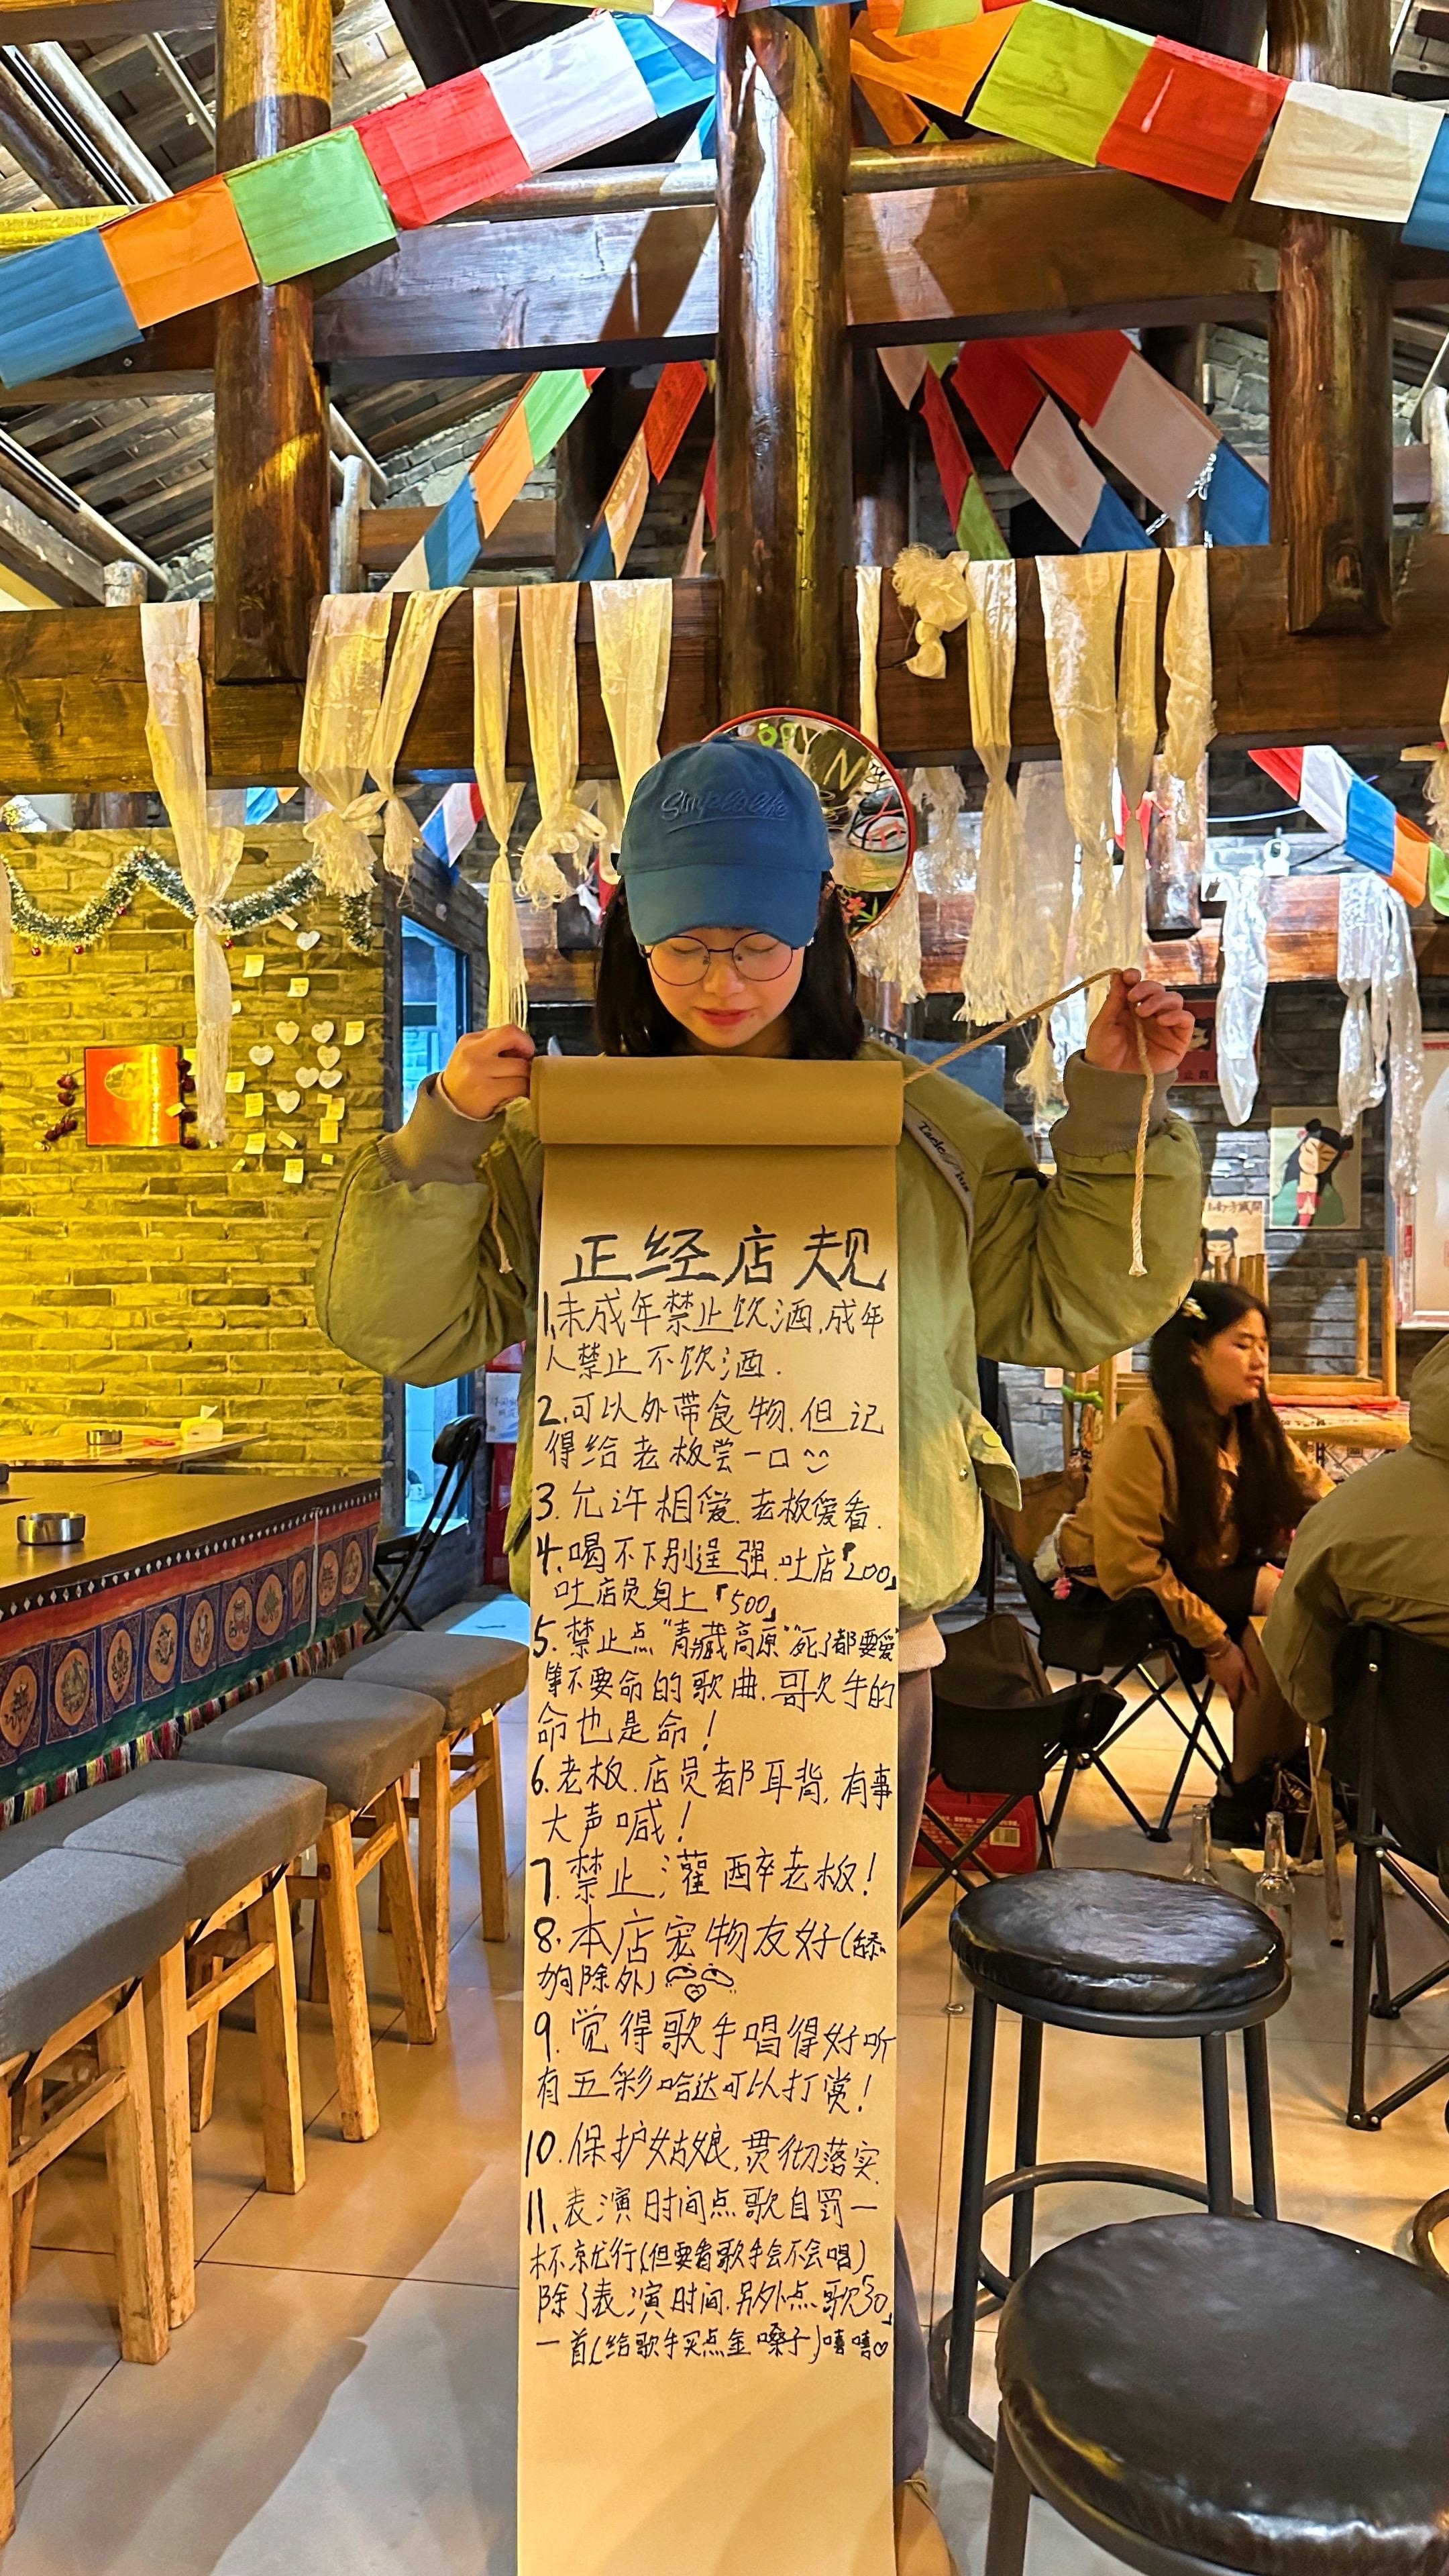 正经店规
1.未成年禁止饮酒,成年
人禁止不饮酒.
2.可以外带食物.但记
得给老板尝一口
3.允许相爱.老板爱看.
4.喝不下别逞强.吐店「200」
吐店员身上「500」
5.禁止点“青藏高原”“死了都要爱”
等不要命的歌曲.歌手的
命也是命!
6.老板.店员都耳背,有事
大声喊!
7.禁止灌醉老板!
8.本店宠物友好(舔
狗除外)
9.觉得歌手唱得好听
有五彩哈达可以打赏!
10.保护姑娘,贯彻落实.
11.表演时间点歌自罚一
杯就行(但要看歌手会不会唱)
除了表演时间.另外点歌「30」
一首(给歌手买点金嗓子)嘻嘻♡